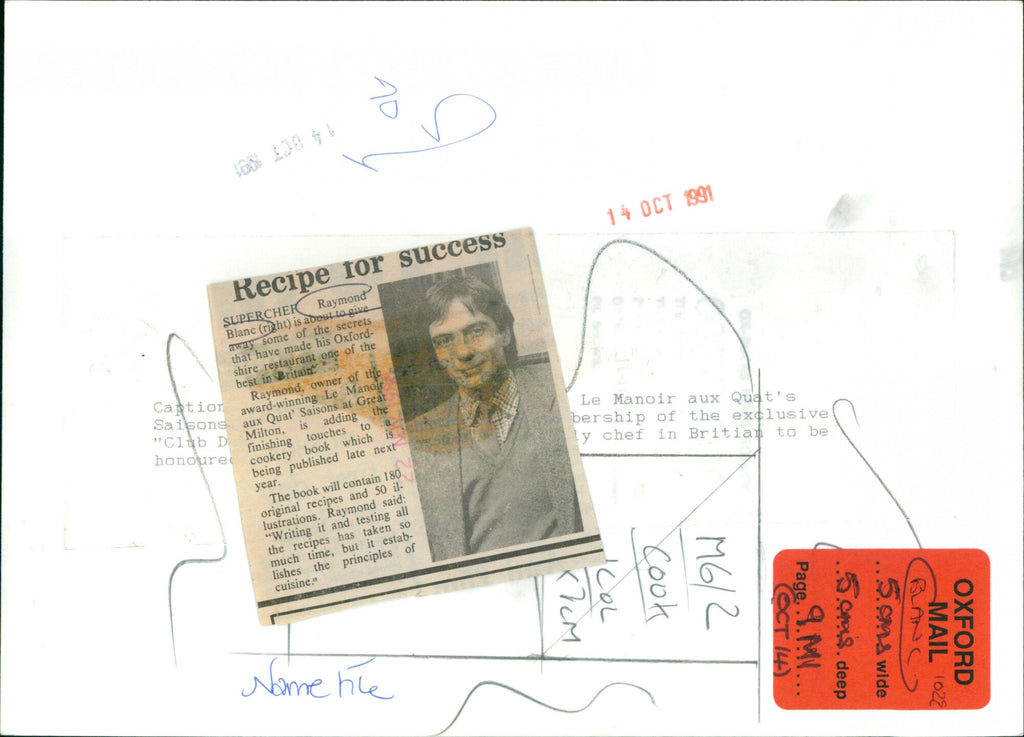 14 OCT 1991
14 OCT 1991
Recipe for success
SUPERCHEF Raymond
Blanc (right) is about to give
away some of the secrets
that have made his Oxford-
shire restaurant one of the
best in Britain.
Raymond, owner of the
award-winning Le Manoir
aux Quat' Saisons at Great
Milton, is adding the
finishing touches to a
cookery book which is
being published late next
year.
The book will contain 180
original recipes and 50 il-
lustrations. Raymond said:
"Writing it and testing all
the recipes has taken so
much time, but it estab-
lishes the principles of
cuisine."
Caption Le Manoir aux Quat's
Saisons bership of the exclusive
"Club D ly chef in Britian to be
honoured
M6/2
Cook
1COL
x7cm
Name File
OXFORD
MAIL 1022
(BLANC)
...5cms wide
...5cms. deep
Page..9 MN....
(OCT 14)